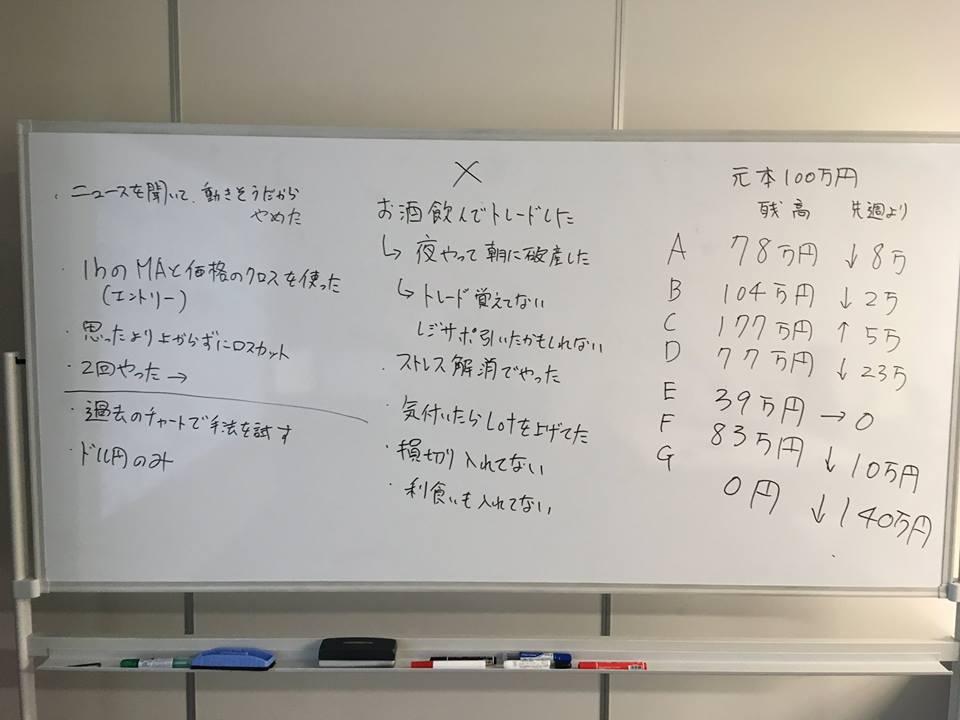 ・ニュースを聞いて、動きそうだから
やめた
・1hのMAと価格のクロスを使った
(エントリー)
・思ったより上がらずにロスカット
・2回やった→
・過去のチャートで手法を試す
・ドル円のみ
×
お酒飲んでトレードした
↳夜やって朝に破産した
↳トレード覚えてない
レジサポ引いたかもしれない
・ストレス解消でやった
・気付いたらLotを上げてた
・損切り入れてない
・利食いも入れてない
元本100万円
残高 先週より
A 78万円 ↓8万
B 104万円 ↓2万
C 177万円 ↑5万
D 77万円 ↓23万
E 39万円 →0
F 83万円 ↓10万円
G 0円 ↓140万円